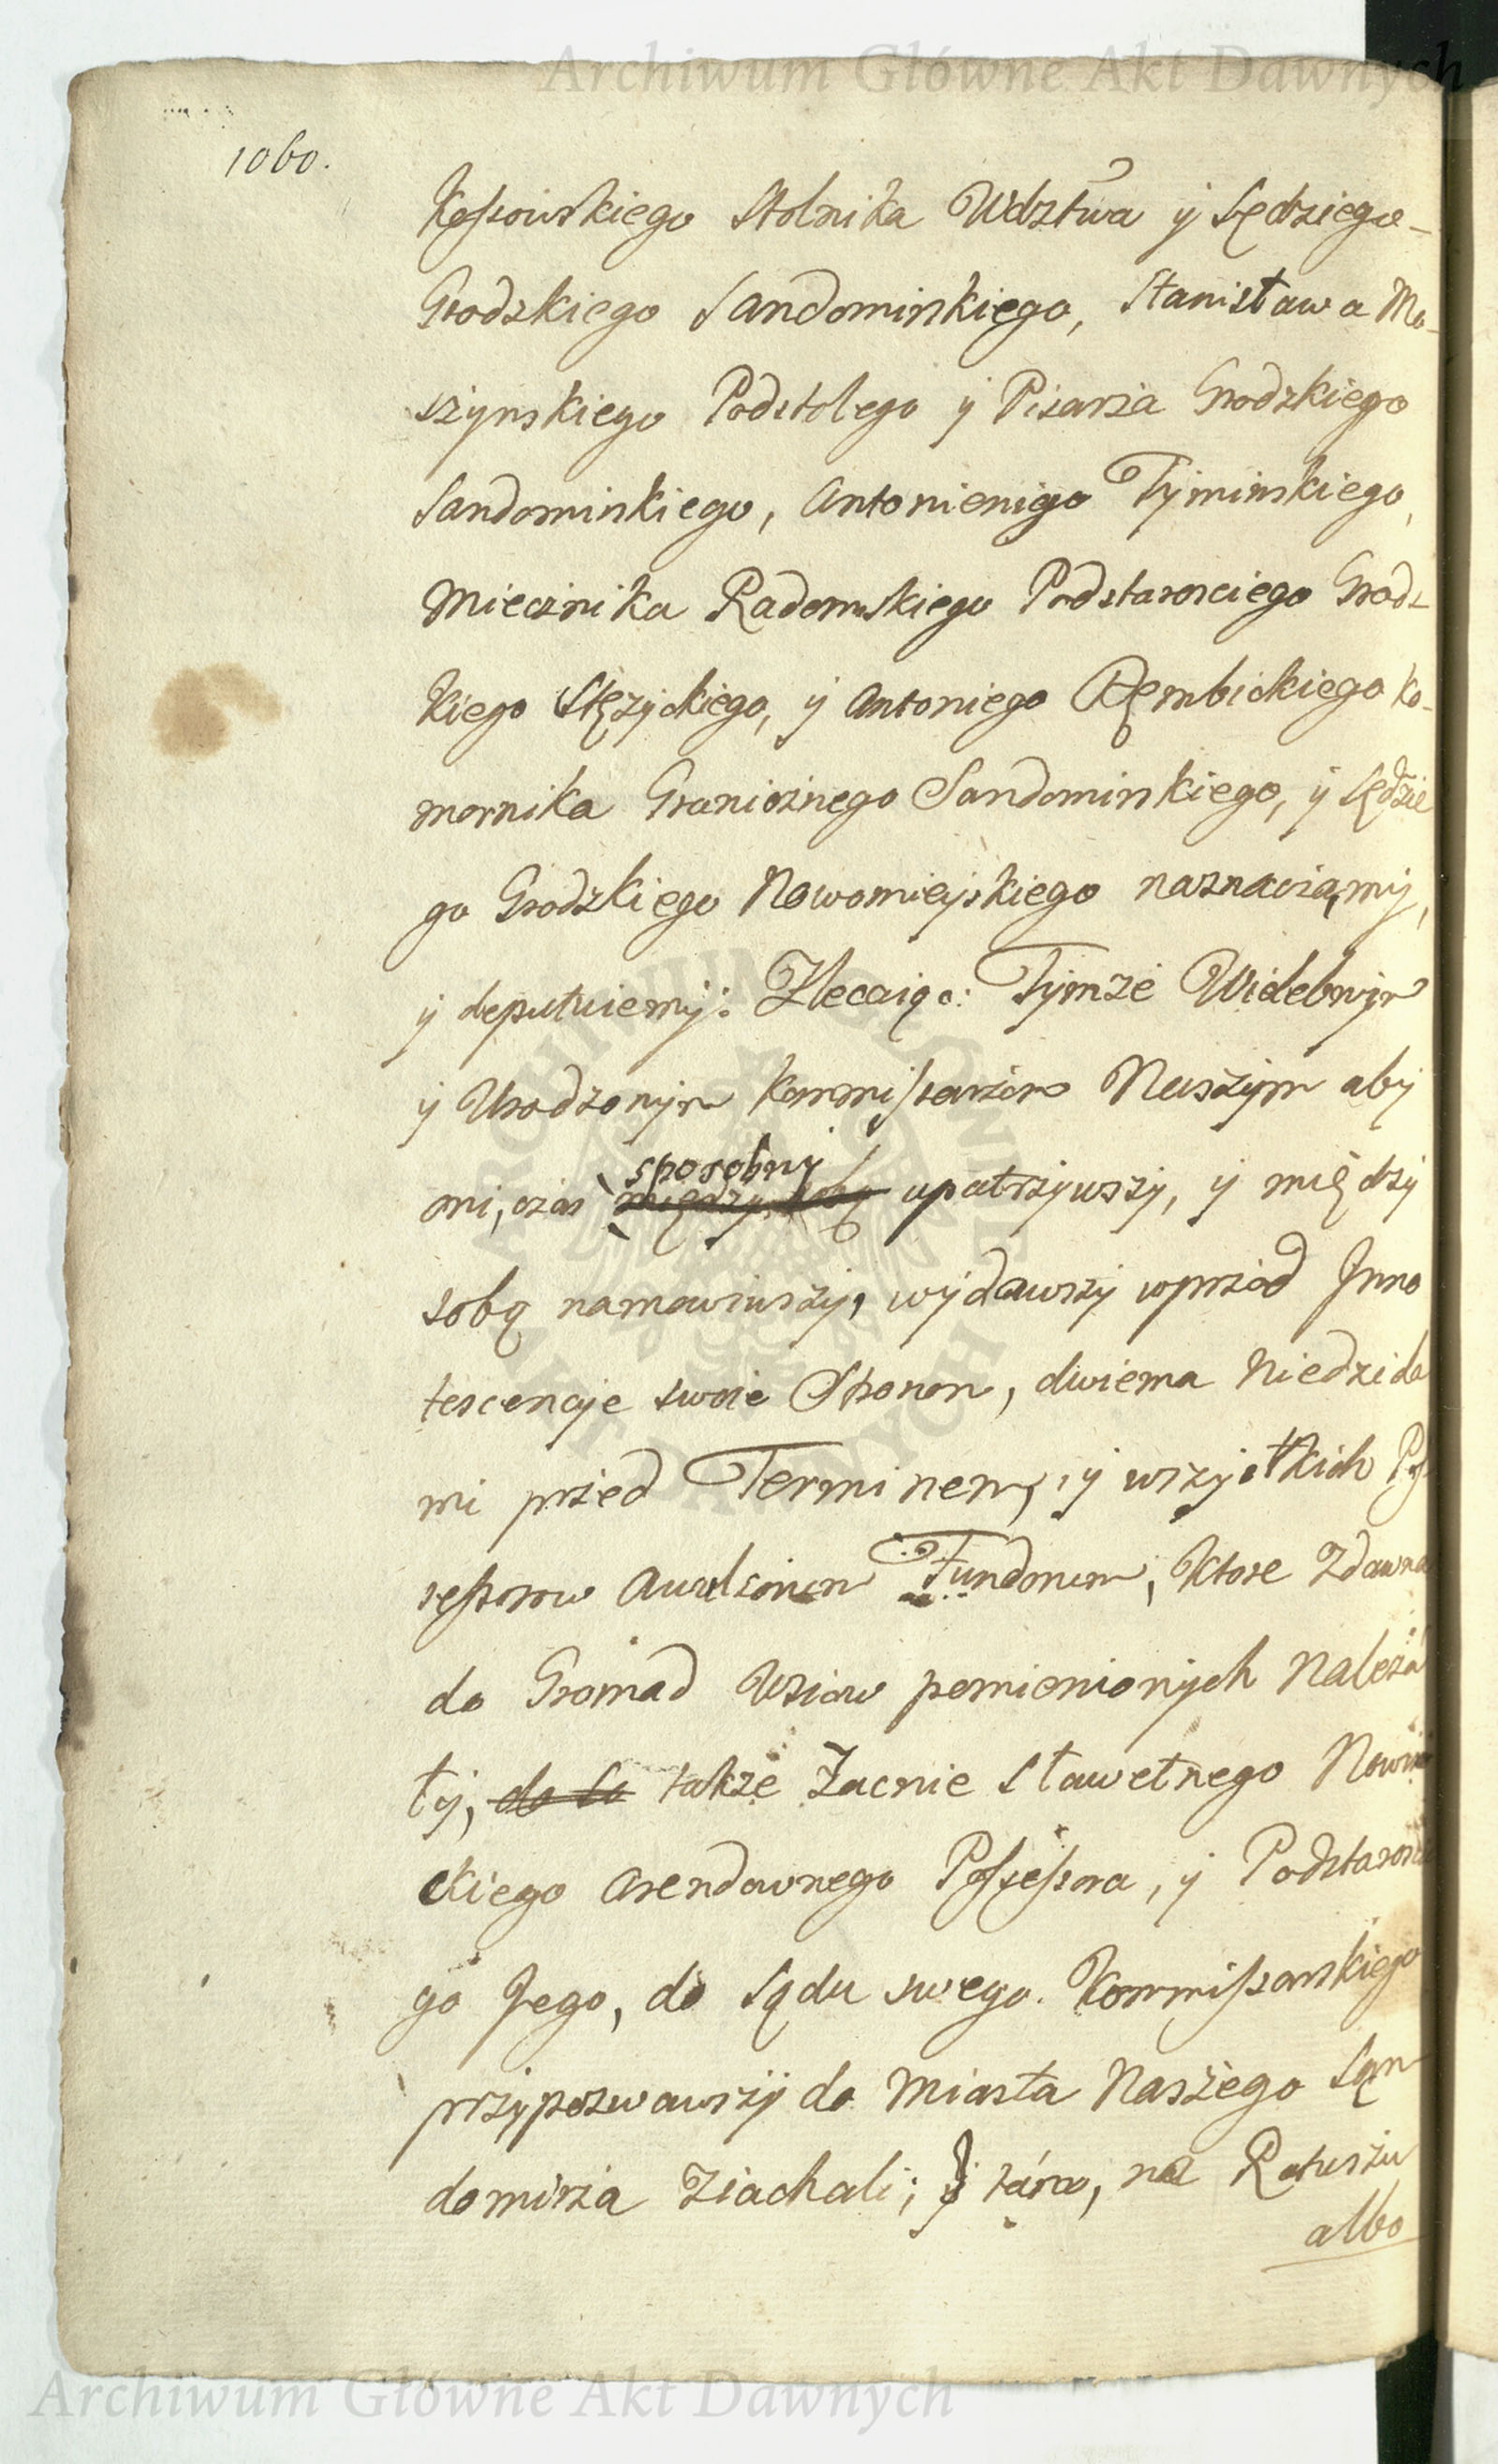 Archiwum Główne Akt Dawnych
1060.
Kossowskiego Stolnika Wdztwa y Sędziego
Grodzkiego Sandomirskiego, Stanisława Mo-
szynskiego Podstolego y Pisarza Grodzkiego
Sandomirskiego, Antoniego Tyminskiego,
Miecznika Radomskiego Podstarosciego Grodz-
kiego Stężyckiego, y Antoniego Rembickiego Ko-
mornika Granicznego Sandomirskiego, y Sędzie
go Grodzkiego Nowomieyskiego naznaczamy,
y deputuiemy: Zlecaiąc: Tymze Wielebnym
y Urodzonym Kommissarzom Naszym aby
oni, czas sposobny
między sobą upatrzywszy, y między
sobą namowiwszy, wydawszy wprzod Inno
tescencye swoie Stronom, dwiema Niedziela
mi przed Terminem, y wszystkich Pos
sessorow Avulsorum Fundorum, Ktore Zdawna
do Gromad Wsiow pomienionych Należa
ły, do Są także Zacnie Sławetnego Nowi
ckiego Arendownego Possessora, y Podstarosci
go Jego, do Sądu swego Kommissarskiego
przypozwawszy do Miasta Naszego San
domirza Ziachali; y tám, na Ratuszu
albo
ARCHIWUM GŁÓWNE AKT DAWNYCH
Archiwum Główne Akt Dawnych